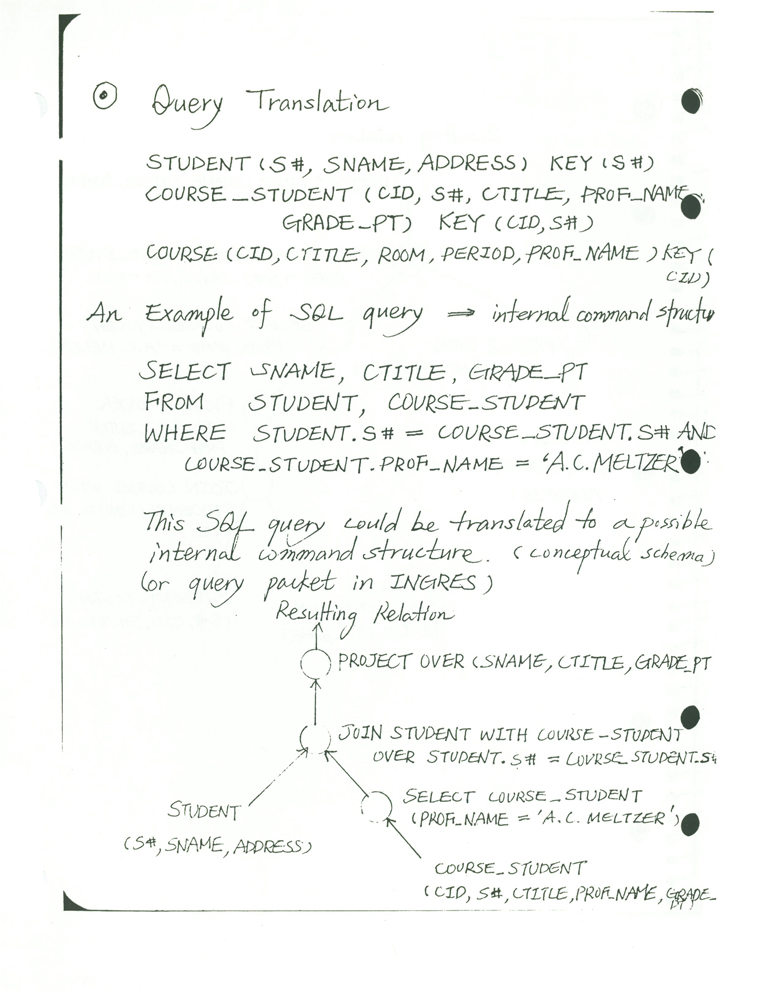 Query Translation
STUDENT (S#, SNAME, ADDRESS) KEY (S#)
COURSE_STUDENT (CID, S#, CTITLE, PROF_NAME,
GRADE_PT) KEY (CID, S#)
COURSE (CID, CTITLE, ROOM, PERIOD, PROF_NAME) KEY (
CID)
An Example of SQL query ⇒ internal command structu
SELECT SNAME, CTITLE, GRADE_PT
FROM STUDENT, COURSE_STUDENT
WHERE STUDENT.S# = COURSE_STUDENT.S# AND
COURSE_STUDENT.PROF_NAME = 'A.C. MELTZER'
This SQL query could be translated to a possible
internal command structure. (conceptual schema)
(or query packet in INGRES)
Resulting Relation
PROJECT OVER (SNAME, CTITLE, GRADE_PT
JOIN STUDENT WITH COURSE-STUDENT
OVER STUDENT.S# = COURSE_STUDENT.S#
SELECT COURSE_STUDENT
(PROF_NAME = 'A.C. MELTZER')
STUDENT
(S#, SNAME, ADDRESS)
COURSE_STUDENT
(CID, S#, CTITLE, PROF_NAME, GRADE_
PT)